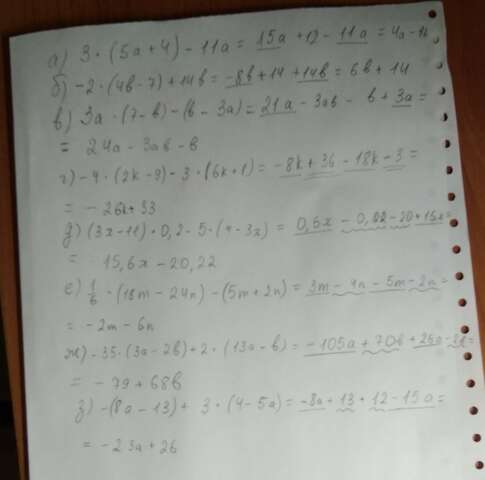 а) 3 · (5а + 4) - 11а = 15а + 12 - 11а = 4а - 12
б) -2 · (4в - 7) + 14в = -8в + 14 + 14в = 6в + 14
в) 3а · (7 - в) - (в - 3а) = 21а - 3ав - в + 3а =
= 24а - 3ав - в
г) -4 · (2k - 9) - 3 · (6k + 1) = -8k + 36 - 18k - 3 =
= - 26k + 33
д) (3x - 11) · 0,2 - 5 · (4 - 3x) = 0,6x - 0,22 - 20 + 15x =
= 15,6x - 20,22
е) 1/6 · (18m - 24n) - (5m + 2n) = 3m - 4n - 5m - 2n =
= -2m - 6n
ж) -35 · (3а - 2в) + 2 · (13а - в) = -105а + 70в + 26а - 2в =
= - 79 + 68в
з) -(8а - 13) + 3 · (4 - 5а) = -8а + 13 + 12 - 15а =
= -23а + 26